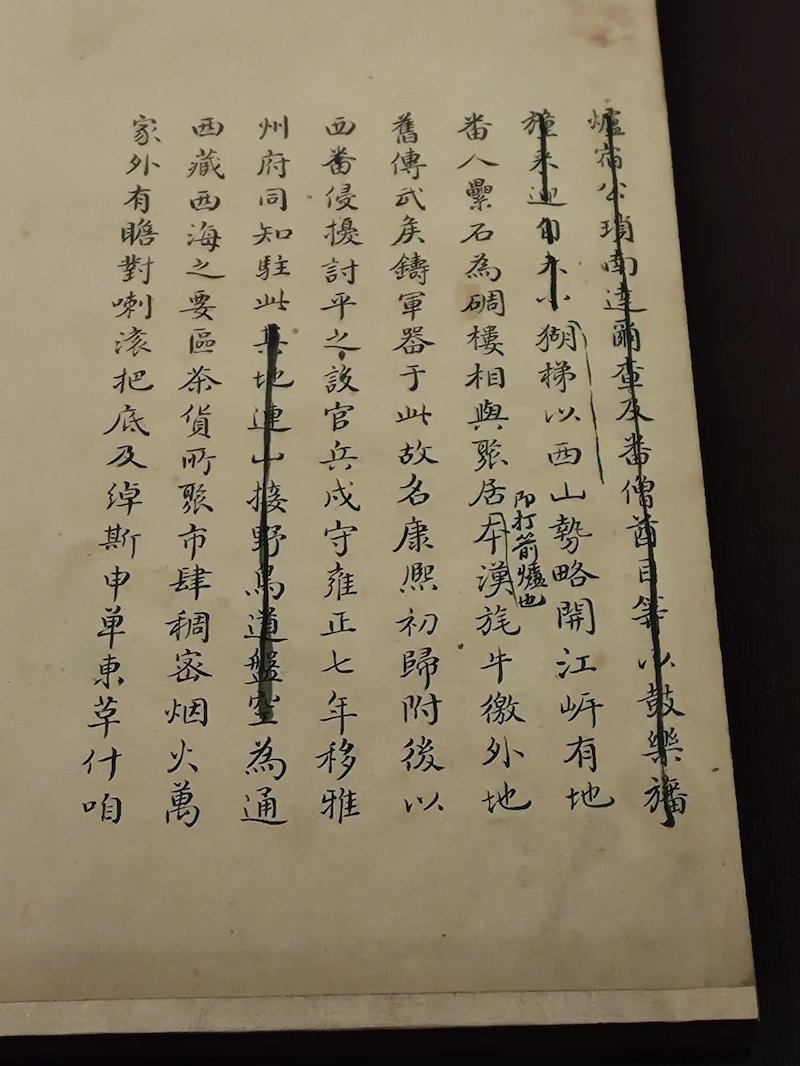 爐宿公瑣南達爾查及番僧酋目等以鼓樂旛
来迎自小猢梯以西山勢略開江岍有地
番人壘石為碉樓相與聚居本漢旄牛徼外地
即打箭爐也
舊傳武侯鑄軍器于此故名康熙初歸附後以
西番侵擾討平之設官兵戍守雍正七年移雅
州府同知駐此其地連山接野鳥道盤空為通
西藏西海之要區茶貨所聚市肆稠密烟火萬
家外有瞻對喇滚把底及綽斯申单東草什咱